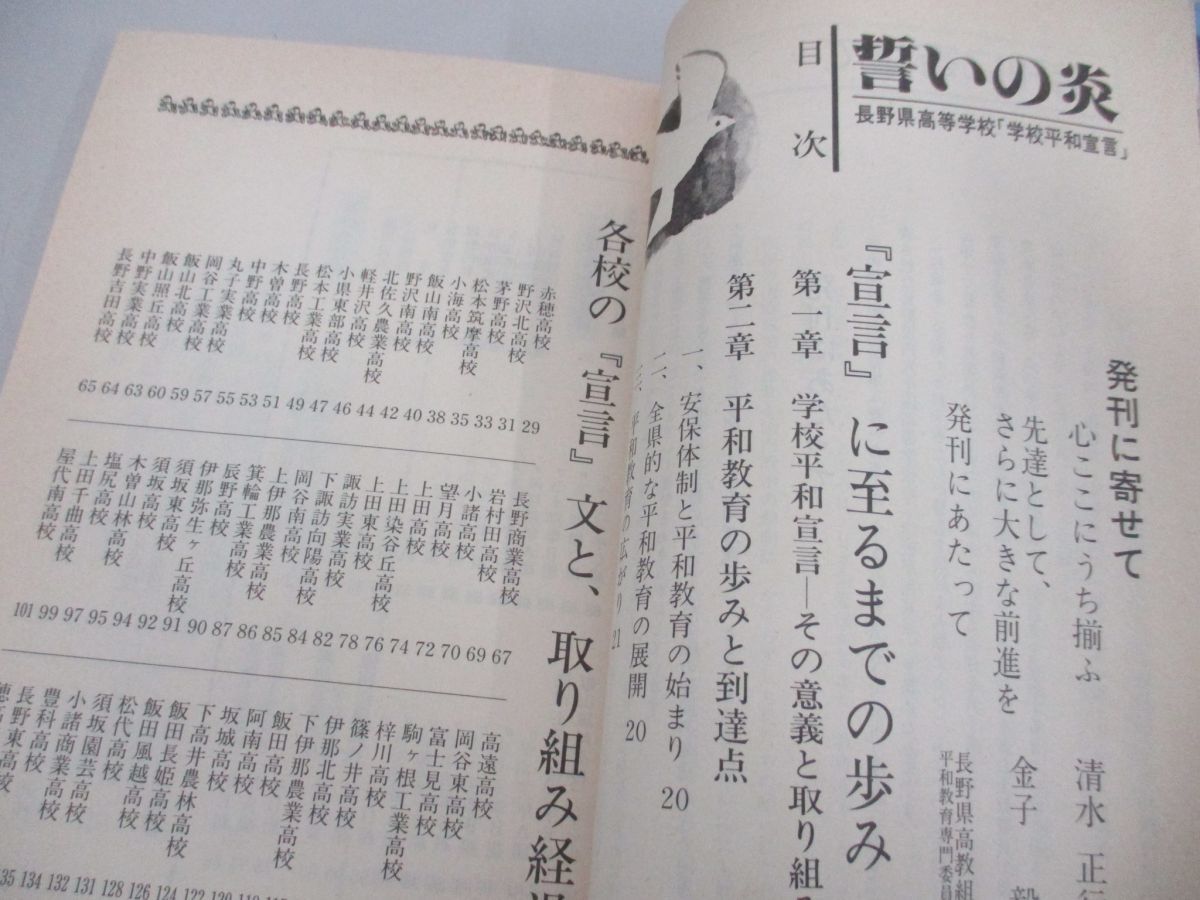 誓いの炎
長野県高等学校「学校平和宣言」
目次
発刊に寄せて
心ここにうち揃ふ 清水 正
先達として、
さらに大きな前進を 金子 毅
発刊にあたって 長野県高教組
平和教育専門委員
『宣言』に至るまでの歩み
第一章 学校平和宣言―その意義と取り組み
第二章 平和教育の歩みと到達点
一、安保体制と平和教育の始まり 20
二、全県的な平和教育の展開 20
三、平和教育の広がり 21
各校の『宣言』文と、取り組み経過
赤穂高校 29
野沢北高校 31
茅野高校 33
松本筑摩高校 35
小海高校 38
飯山南高校 40
野沢南高校 42
北佐久農業高校 44
軽井沢高校 46
小県東部高校 47
松本工業高校 49
長野高校 51
木曽高校 53
中野高校 55
丸子実業高校 57
岡谷工業高校 59
飯山北高校 60
飯山照丘高校 63
中野実業高校 64
長野吉田高校 65
長野商業高校 67
岩村田高校 69
小諸高校 70
望月高校 72
上田高校 74
上田染谷丘高校 76
上田東高校 78
諏訪実業高校 82
下諏訪向陽高校 84
岡谷南高校 85
上伊那農業高校 86
箕輪工業高校 87
辰野高校 90
伊那弥生ヶ丘高校 91
須坂東高校 92
須坂高校 94
木曽山林高校 95
塩尻高校 97
上田千曲高校 99
屋代南高校 101
高遠高校
岡谷東高校
富士見高校
駒ヶ根工業高校
梓川高校
篠ノ井高校
伊那北高校
下伊那農業高校
飯田高校
阿南高校
坂城高校 120
下高井農林高校 122
飯田長姫高校 124
飯田風越高校 126
松代高校 128
須坂園芸高校 131
小諸商業高校 132
豊科高校 134
長野東高校 135
穂高